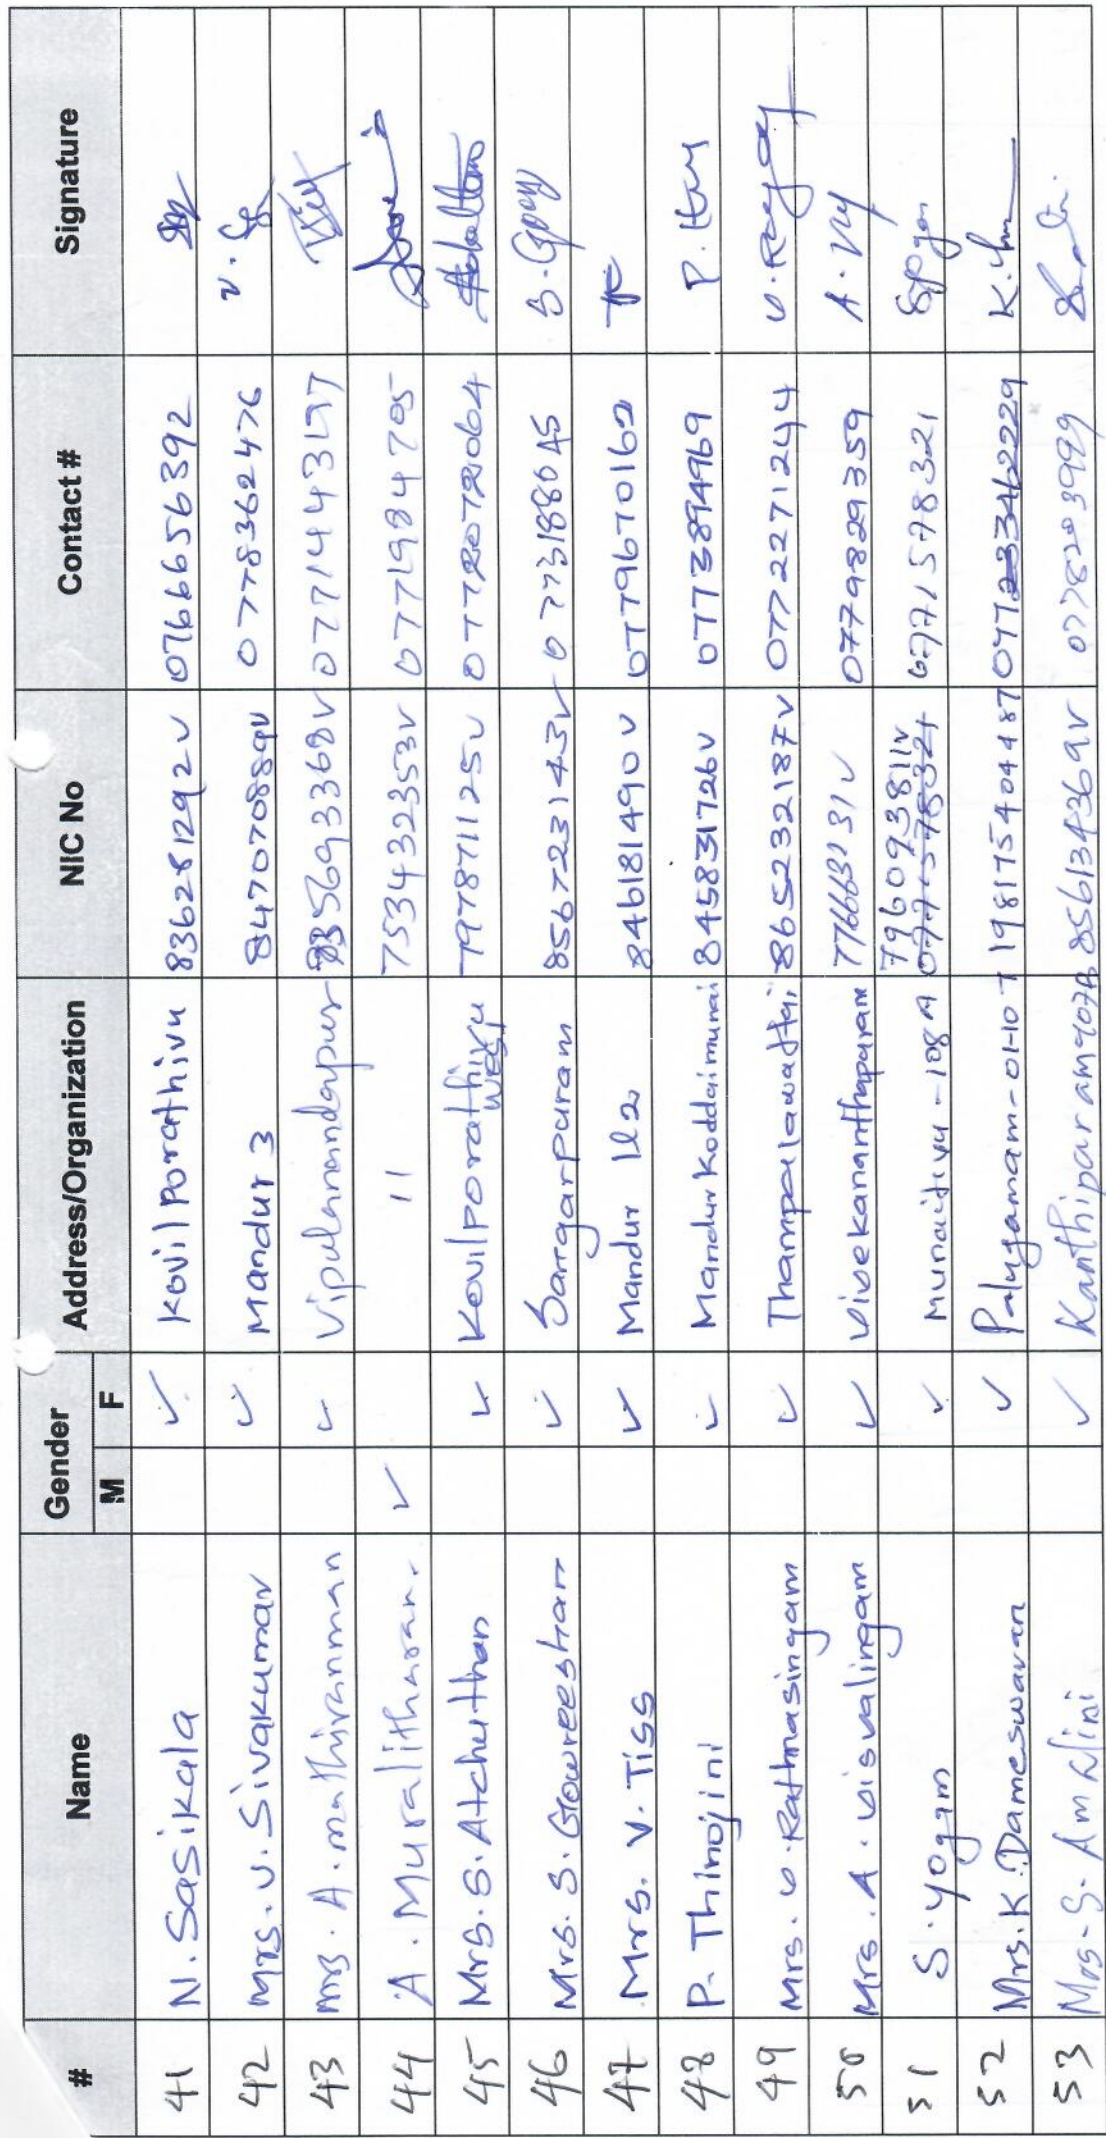 # Name Gender Address/Organization NIC No Contact # Signature
M F
41 N. Sasikala ✓ Kovil Porathivu 836281292V 0766656392
42 Mrs. V. Sivakumar ✓ Mandur 3 847070889V 0778362476
43 Mrs. A. mathiranman ✓ Vipulanandapur 0771443197
44 A. Muralitharan. ✓ 11 753432353V 0771984705
45 Mrs. S. Atchuthan ✓ Kovilporathivu west 797871125V
46 Mrs. S. Gowreeshan ✓ Sangarpuram 856723143V 0773188045
47 Mrs. V. Tiss ✓ Mandur 1&2 846181490V 0779670162
48 P. Thinojini ✓ Mandur Koddaimunai 845831726V 0773894969 P.
49 Mrs. V. Rathnasingam ✓ Thampalawattai 865232187V 0772271244
50 Mrs. A. Visvalingam ✓ Vivekananthapuram 0779829359
51 S. Yogam ✓ Munaitivu - 108A 796093811V 0771578321 0771578321
52 Mrs. K. Dameswaran ✓ Palugamam-01-107 198175404487
53 Mrs. S. Amalini ✓ 856134369V